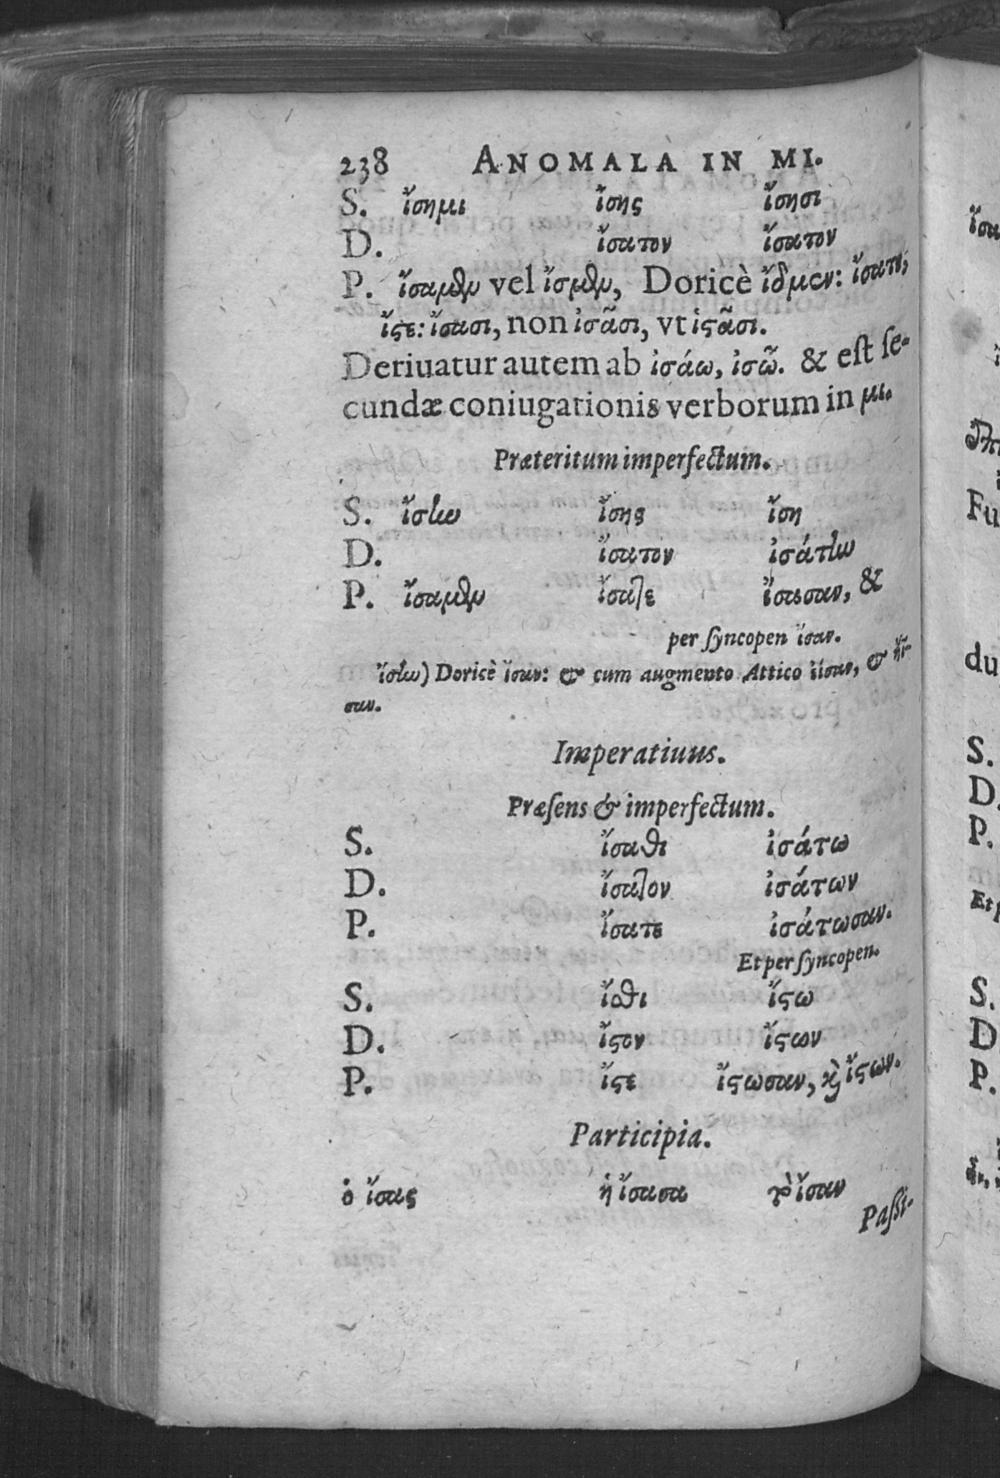 238 ANOMALA IN MI.
S. ἴσημι ἴσης ἴσησι
D. ἴσατον ἴσατον
P. ἴσαμεν vel ἴσμεν, Doricè ἴδμεν: ἴσατε,
ἴϛε: ἴσασι, non ἰσᾶσι, vt ἱϛᾶσι.
Deriuatur autem ab ἰσάω, ἰσῶ. & est se-
cundæ coniugationis verborum in μι.
Præteritum imperfectum.
S. ἴσην ἴσης ἴση
D. ἴσατον ἰσάτην
P. ἴσαμεν ἴσατε ἴσασαν, &
per syncopen ἴσαν.
ἴσην) Doricè ἴσαν: & cum augmento Attico ἤϊσαν, & ᾖ-
σαν.
Imperatiuus.
Præsens & imperfectum.
S. ἴσαθι ἰσάτω
D. ἴσατον ἰσάτων
P. ἴσατε ἰσάτωσαν.
Et per syncopen.
S. ἴσθι ἴϛω
D. ἴϛον ἴϛων
P. ἴϛε ἴϛωσαν, ϗ ἴϛων.
Participia.
ὁ ἴσας ἡ ἴσασα τὸ ἴσαν
Passi-
Fu
du
S.
D.
P.
Et p
S.
D
P.